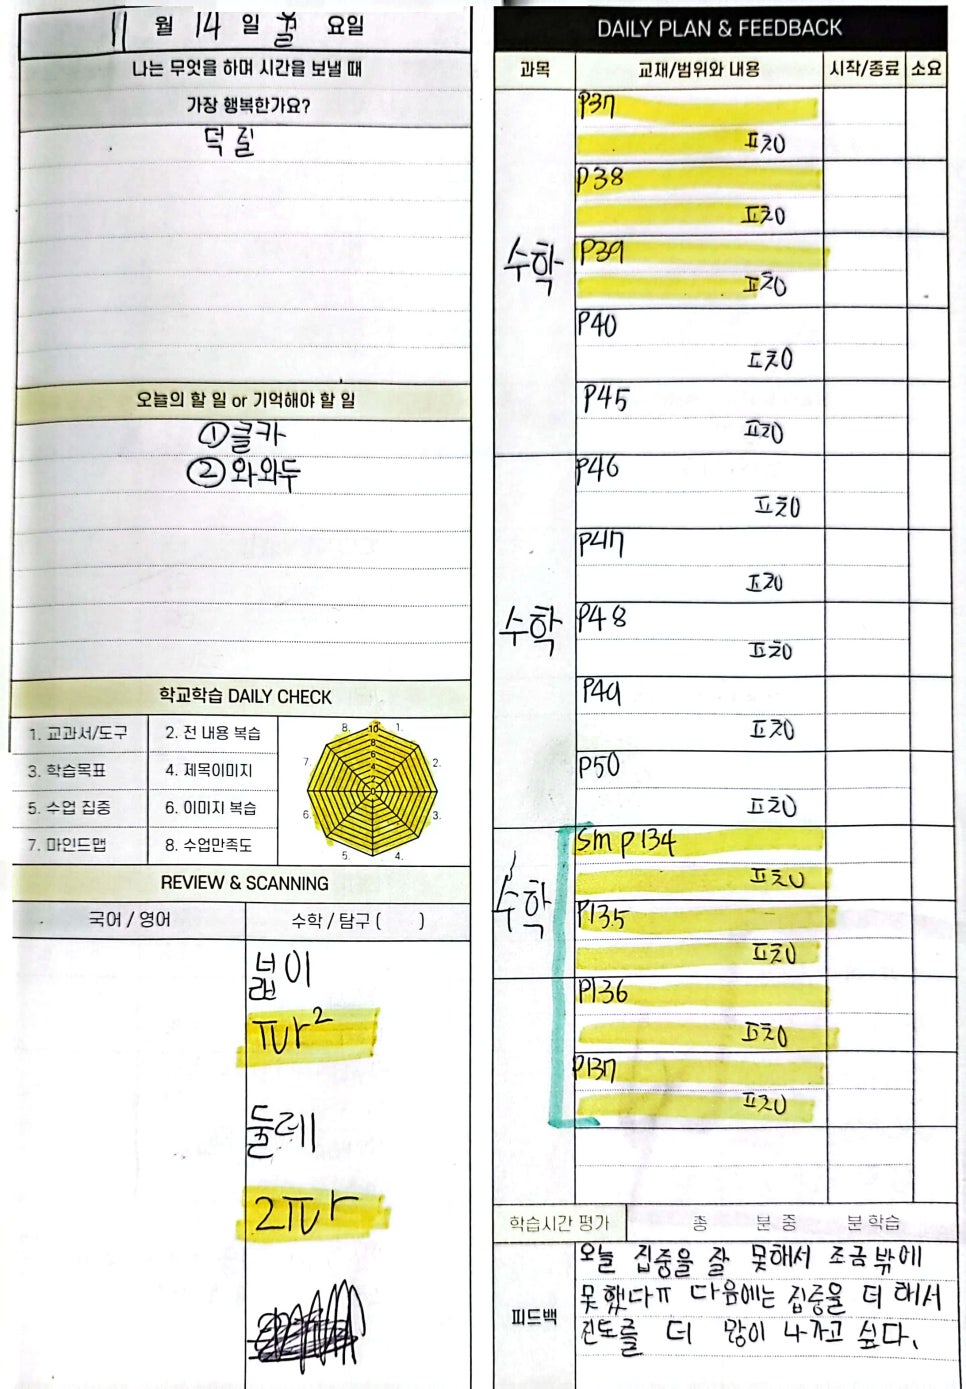 11 월 14 일 월 요일
나는 무엇을 하며 시간을 보낼 때
가장 행복한가요?
덕질
오늘의 할 일 or 기억해야 할 일
① 클카
② 와와두
학교학습 DAILY CHECK
1. 교과서/도구
2. 전 내용 복습
3. 학습목표
4. 제목이미지
5. 수업 집중
6. 이미지 복습
7. 마인드맵
8. 수업만족도
8. 10 1.
8
7. 6 2.
4
2
0
6. 3.
5. 4.
REVIEW & SCANNING
국어 / 영어
수학 / 탐구 ( )
넓이
πr²
둘레
2πr
DAILY PLAN & FEEDBACK
과목 교재/범위와 내용 시작/종료 소요
수학
P37
프친0
P38
프친0
P39
프친0
P40
프친0
P45
프친0
수학
P46
프친0
P47
프친0
P48
프친0
P49
프친0
P50
프친0
수학
Sm P134
프친0
P135
프친0
P136
프친0
P137
프친0
학습시간 평가 총 분 중 분 학습
피드백
오늘 집중을 잘 못해서 조금밖에
못했다ㅠ 다음에는 집중을 더 해서
진도를 더 많이 나가고 싶다.